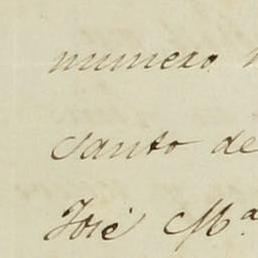 numero
Santo de
José M.ª